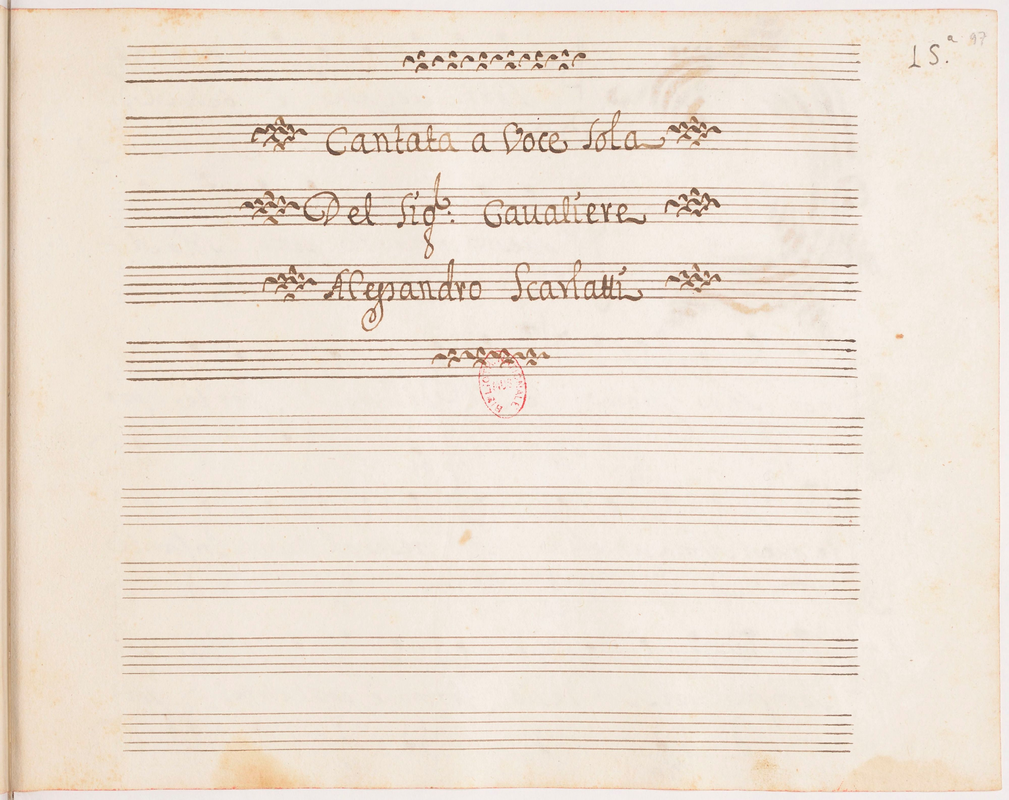 LS.ª 97
Cantata a Voce Sola
Del Sig.r Caualiere
Alessandro Scarlatti